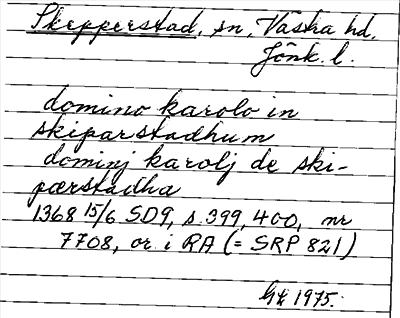 Skepperstad, sn, Västra hd,
Jönk. l.
domino karolo in
skiparstadhum
dominj karolj de ski-
pærstadha
1368 15/6 SD9, s. 399, 400, nr
7708, or. i RA (= SRP 821)
1975.